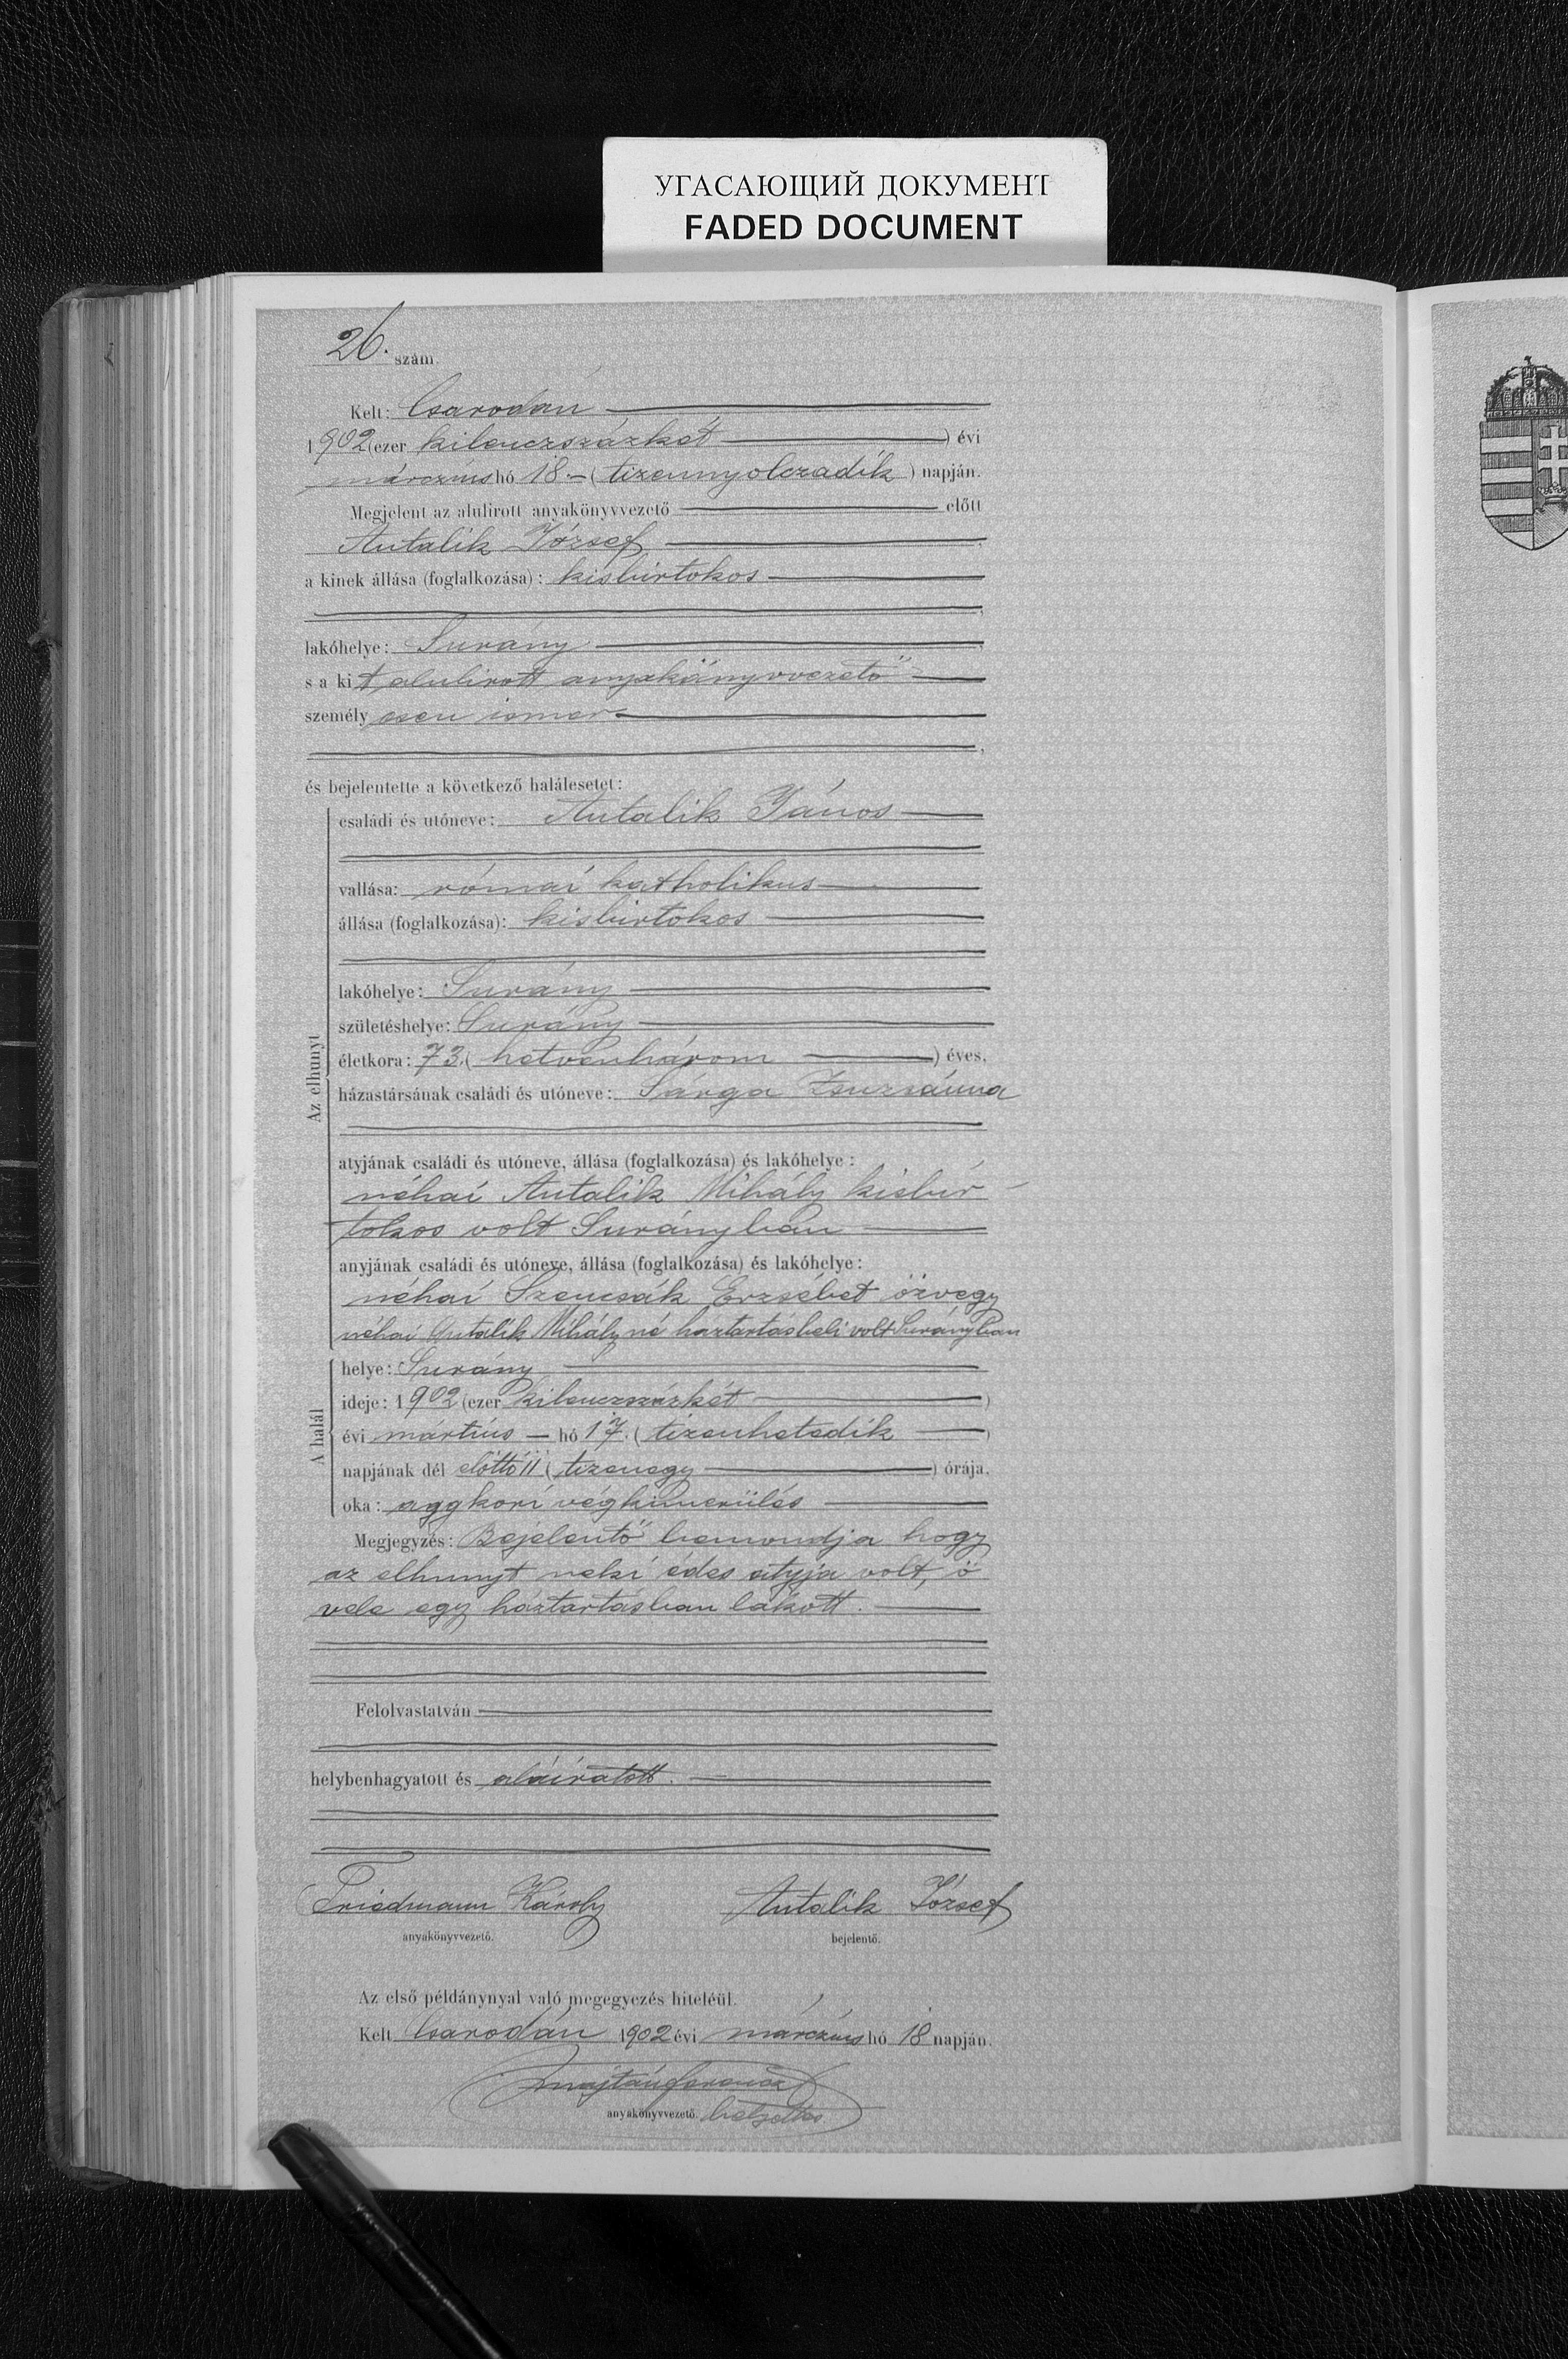 УГАСАЮЩИЙ ДОКУМЕНТ
FADED DOCUMENT
26. szám.
Kelt: Csarodán
1902 (ezer kilenczszázkét ) évi
márczius hó 18.– ( tizennyolczadik ) napján.
Megjelent az alulirott anyakönyvvezető előtt
Antalik József
a kinek állása (foglalkozása): kisbirtokos
lakóhelye: Surány
s a kit alulirott anyakönyvvezető
személyesen ismer
és bejelentette a következő halálesetet:
Az elhunyt
családi és utóneve: Antalik János
vallása: római katholikus
állása (foglalkozása): kisbirtokos
lakóhelye: Surány
születéshelye: Surány
életkora: 73. ( hetvenhárom ) éves,
házastársának családi és utóneve: Sárga Zsuzsánna
atyjának családi és utóneve, állása (foglalkozása) és lakóhelye:
néhai Antalik Mihály kisbir-
tokos volt Surányban
anyjának családi és utóneve, állása (foglalkozása) és lakóhelye:
néhai Szencsák Erzsébet özvegy
néhai Antalik Mihályné háztartásbeli volt Surányban
A halál
helye: Surány
ideje: 1902 (ezer kilenczszázkét )
évi mártius – hó 17. ( tizenhetedik )
napjának dél előtti 11 ( tizenegy ) órája,
oka: aggkori végkimerülés
Megjegyzés: Bejelentő bemondja hogy
az elhunyt neki édes atyja volt, ő
vele egy háztartásban lakott.
Felolvastatván
helybenhagyatott és aláiratott.
Friedmann Károly Antalik József
anyakönyvvezető. bejelentő.
Az első példánynyal való megegyezés hiteléül.
Kelt Csarodán 1902 évi márczius hó 18 napján.
Majtán Ferencz
anyakönyvvezető. helyettes